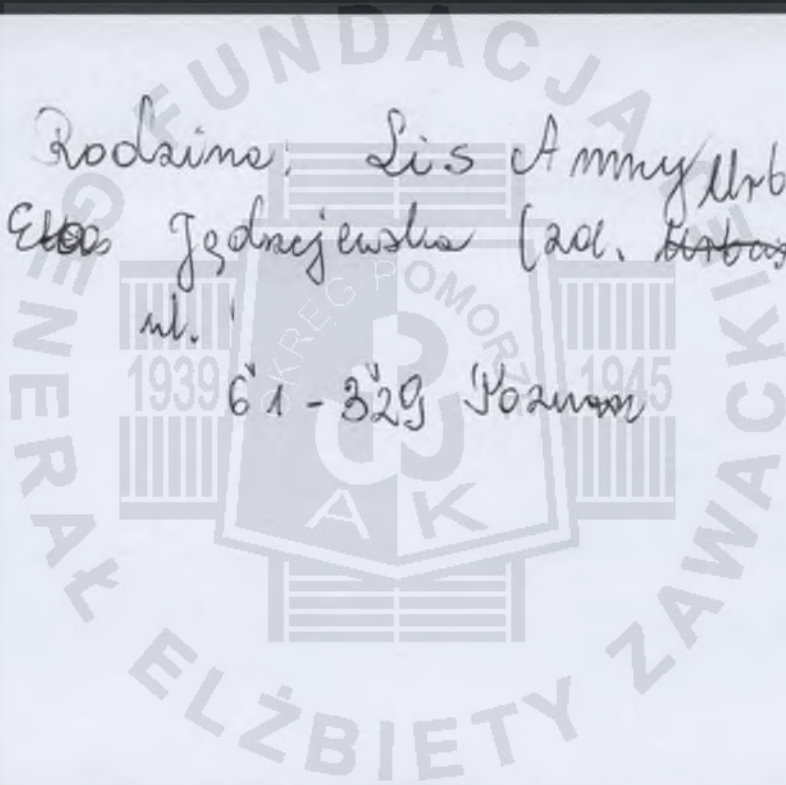 Rodzina: Lis Anny Urb
Jędrzejewska (zd. Urbas
ul.
61-329 Poznań
FUNDACJA
GENERAŁ ELŻBIETY ZAWACKIE
OKRĘG POMORZ
1939 1945
AK